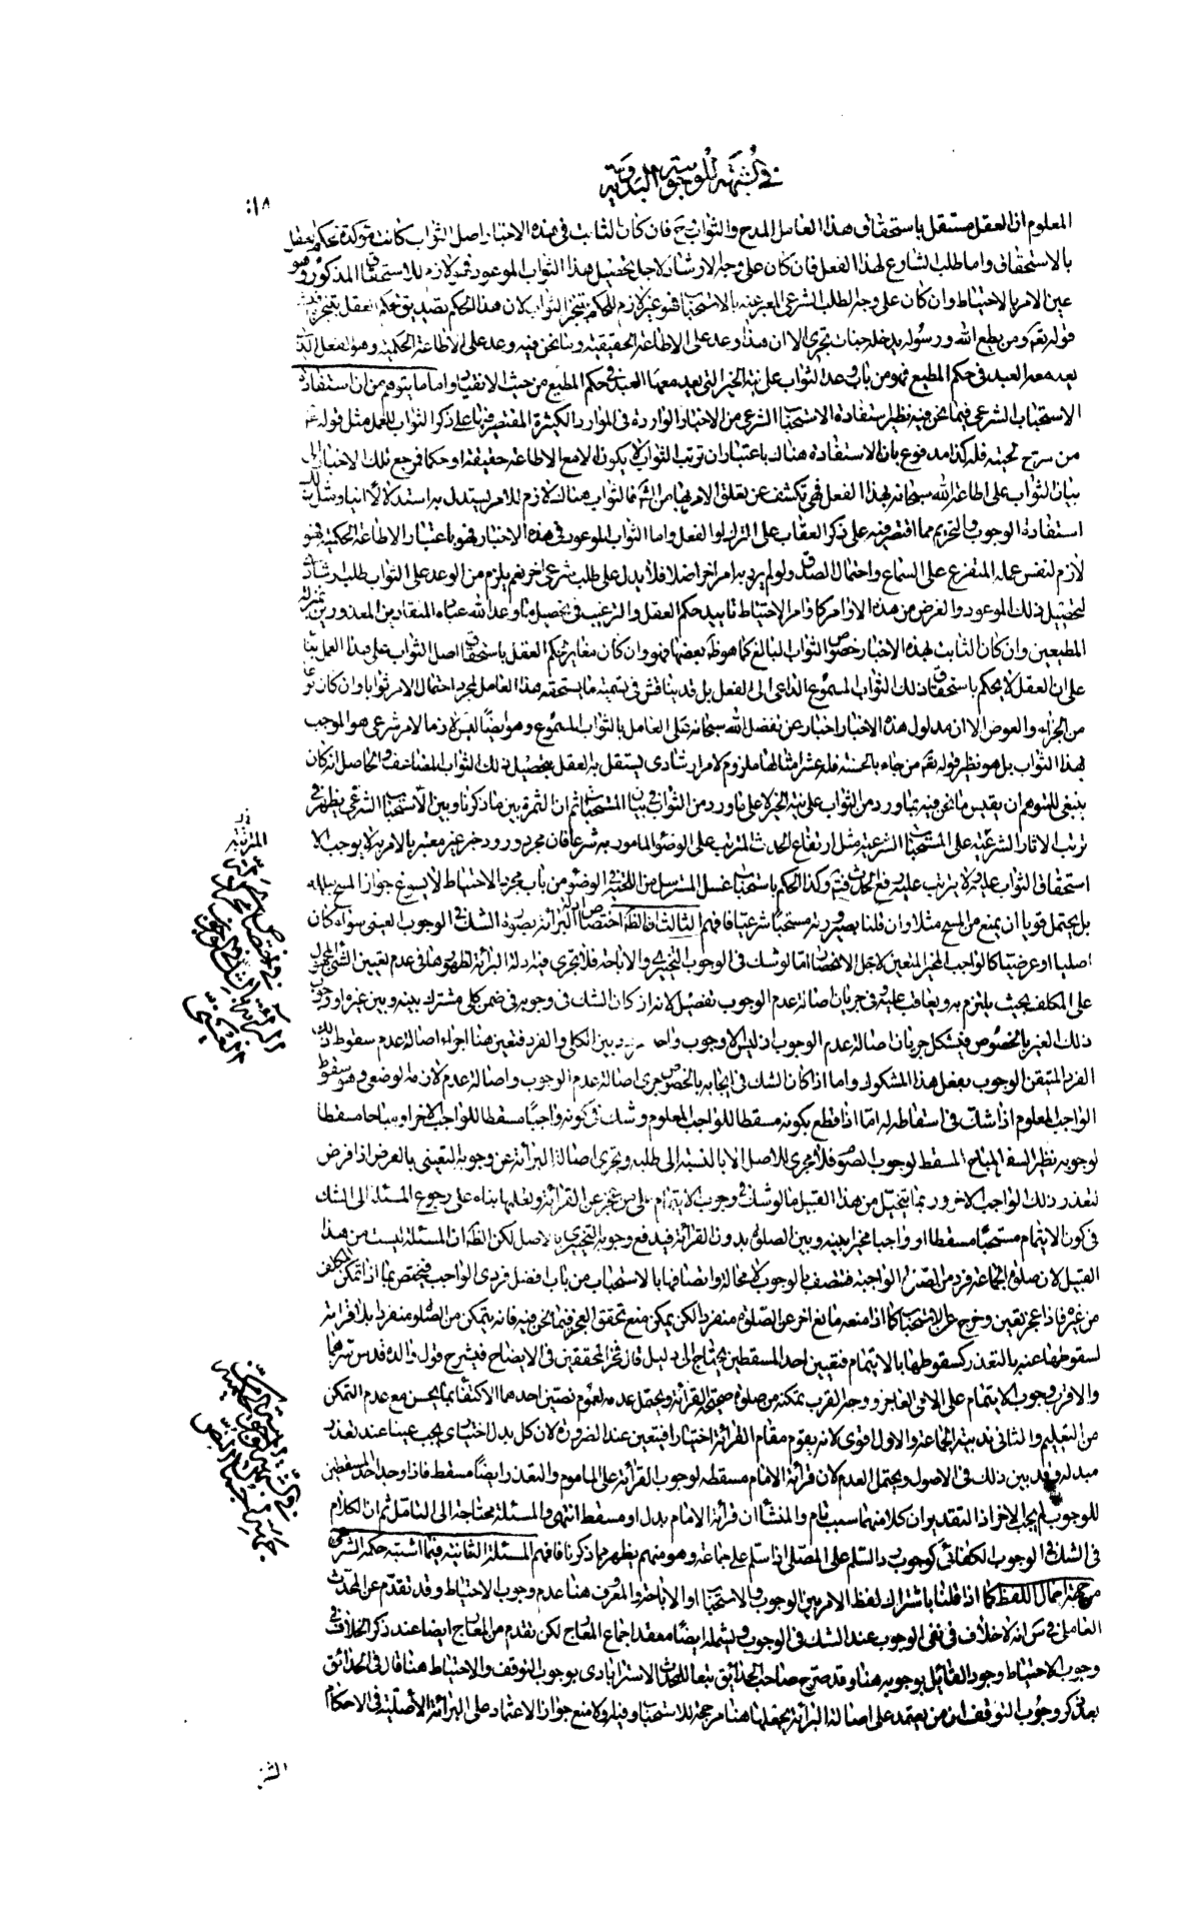 في الشبهة الوجوبية البدوية
المعلوم ان العقل مستقل باستحقاق هذا العامل المدح والثواب وح فان كان الثابت في هذه الاخبار اصل الثواب كانت مؤكدة لحكم العقل
بالاستحقاق واما طلب الشارع لهذا الفعل فان كان على وجه الارشاد لاجل تحصيل هذا الثواب الموعود فهو لازم للاستحقاق المذكور وهو
عين الامر بالاحتياط وان كان على وجه الطلب الشرعي المعبر عنه بالاستحباب فهو غير لازم للحكم بتنجز الثواب لان هذا الحكم تصديق لحكم العقل بتنجزه فيشبه
قوله تعم ومن يطع الله ورسوله يدخله جنات تجري الا ان هذا وعد على الاطاعة الحقيقية وما نحن فيه وعد على الاطاعة الحكمية وهو الفعل الذي
يعد معه العبد في حكم المطيع فهو من باب وعد الثواب على نية الخير التي يعد معها العبد في حكم المطيع من حيث الانقياد واما ما يتوهم من ان استفادة
الاستحباب الشرعي فيما نحن فيه نظير استفادة الاستحباب الشرعي من الاخبار الواردة في الموارد الكثيرة المقتصر فيها على ذكر الثواب للعمل مثل قوله ع
من سرح لحيته فله كذا مدفوع بان الاستفادة هناك باعتبار ان ترتب الثواب لا يكون الا مع الاطاعة حقيقة او حكما فمرجع تلك الاخبار الى
بيان الثواب على اطاعة الله سبحانه بهذا الفعل فهي تكشف عن تعلق الامر بها من الشارع فالثواب هناك لازم للامر يستدل به استدلالا انيا ومثل ذلك
استفادة الوجوب والتحريم مما اقتصر فيه على ذكر العقاب على الترك او الفعل واما الثواب الموعود في هذه الاخبار فهو باعتبار الاطاعة الحكمية فهو
لازم لنفس عمله المتفرع على السماع واحتمال الصدق ولو لم يرد به امر اخر اصلا فلا يدل على طلب شرعي اخر نعم يلزم من الوعد على الثواب طلب ارشادي
لتحصيل ذلك الموعود والغرض من هذه الاوامر كاوامر الاحتياط تاييد حكم العقل والترغيب في تحصيل ما وعد الله عباده المنقادين المعدودين بمنزلة
المطيعين وان كان الثابت بهذه الاخبار خصوص الثواب البالغ كما هو ظ بعضها فهو وان كان مغايرا لحكم العقل باستحقاق اصل الثواب على هذا العمل بناء
على ان العقل لا يحكم باستحقاق ذلك الثواب المسموع الداعي الى الفعل بل قد يناقش في تسمية ما يستحقه هذا العامل لمجرد احتمال الامر ثوابا وان كان نوعا
من الجزاء والعوض الا ان مدلول هذه الاخبار اخبار عن تفضل الله سبحانه على العامل بالثواب المسموع وهو ايضا ليس لازما لامر شرعي هو الموجب
لهذا الثواب بل هو نظير قوله تعم من جاء بالحسنة فله عشر امثالها ملزوم لامر ارشادي يستقل به العقل بتحصيل ذلك الثواب المضاعف والحاصل انه كان
ينبغي للمتوهم ان يقيس ما نحن فيه بما ورد من الثواب على نية الخير لا على ما ورد من الثواب في بيان المستحبات ثم ان الثمرة بين ما ذكرنا وبين الاستحباب الشرعي يظهر في
ترتب الاثار الشرعية على المستحبات الشرعية مثل ارتفاع الحدث المترتب على الوضوء المامور به شرعا فان مجرد ورود خبر غير معتبر بالامر به لا يوجب الا
استحقاق الثواب عليه ولا يترتب عليه رفع الحدث فتم وكذا الحكم باستحباب غسل المسترسل من اللحية في الوضوء من باب مجرد الاحتياط لا يسوغ جواز المسح ببلله
بل يحتمل قويا ان يمنع من المسح مثلا وان قلنا بصيرورته مستحبا شرعيا فافهم الثالث ان الظ اختصاص ادلة البرائة بصورة الشك في الوجوب التعييني سواء كان
اصليا او عرضيا كالواجب المخير المتعين لاجل الانحصار اما لو شك في الوجوب التخييري والاباحة فلا يجري فيه ادلة البرائة لظهورها في عدم تعيين الشئ المجهول
على المكلف بحيث يلتزم به ويعاقب عليه وفي جريان اصالة عدم الوجوب تفصيل لانه ان كان الشك في وجوبه في ضمن كلي مشترك بينه وبين غيره او وجوب
ذلك الغير بالخصوص فيشكل جريان اصالة عدم الوجوب اذ ليس الا وجوب واحد مردد بين الكلي والفرد فتعين هنا اجراء اصالة عدم سقوط ذلك
الفرد المتيقن الوجوب بفعل هذا المشكوك واما اذا كان الشك في ايجابه بالخصوص جرى اصالة عدم الوجوب واصالة عدم لازمه الوضعي وهو سقوط
الواجب المعلوم اذا شك في اسقاطه له اما اذا قطع بكونه مسقطا للواجب المعلوم وشك في كونه واجبا مسقطا للواجب الاخر او مباحا مسقطا
لوجوبه نظير السفر المباح المسقط لوجوب الصوم فلا مجرى للاصل الا بالنسبة الى طلبه وتجري اصالة البرائة عن وجوبه التعييني بالعرض اذا فرض
تعذر ذلك الواجب الاخر وربما يتخيل من هذا القبيل ما لو شك في وجوب الايتمام على من عجز عن القرائة وتعلمها بناء على رجوع المسئلة الى الشك
في كون الايتمام مستحبا مسقطا او واجبا مخيرا بينه وبين الصلوة بدون القرائة فيدفع وجوبه التخييري بالاصل لكن الظ ان المسئلة ليست من هذا
القبيل لان صلوة الجماعة فرد من الصلوة الواجبة فتتصف بالوجوب لا محالة واتصافها بالاستحباب من باب افضل فردي الواجب فيختص بما اذا تمكن المكلف
من غيره فاذا عجز تعين وخرج عن الاستحباب كما اذا منعه مانع اخر عن الصلوة منفردا لكن يمكن منع تحقق العجز فيما نحن فيه فانه يتمكن من الصلوة منفردا بلا قرائة
لسقوطها عنه بالتعذر كسقوطها بالايتمام فتعيين احد المسقطين يحتاج الى دليل قال فخر المحققين في الايضاح في شرح قول والده قدس سرهما
والاقرب وجوب الايتمام على الامي العاجز ووجه القرب تمكنه من صلوة صحيحة القرائة ويحتمل عدمه لعموم نصين احدهما الاكتفاء بما يحسن مع عدم التمكن
من التعليم والثاني ندبية الجماعة والاول اقوى لانه يقوم مقام القرائة اختيارا فيتعين عند الضرورة لان كل بدل اختياري يجب عينا عند تعذر
مبدله وقد بين ذلك في الاصول ويحتمل العدم لان قرائة الامام مسقطة لوجوب القرائة على الماموم والتعذر ايضا مسقط فاذا وجد احد المسقطين
للوجوب لم يجب الاخر اذ التقدير ان كلا منهما سبب تام والمنشأ ان قرائة الامام بدل او مسقط انتهى والمسئلة محتاجة الى التامل ثم ان الكلام
في الشك في الوجوب الكفائي كوجوب رد السلام على المصلي اذا سلم على جماعة وهو منهم يظهر مما ذكرنا فافهم المسئلة الثانية فيما اشتبه حكمه الشرعي
من جهة اجمال اللفظ كما اذا قلنا باشتراك لفظ الامر بين الوجوب والاستحباب او الاباحة والمعروف هنا عدم وجوب الاحتياط وقد تقدم عن المحدث
العاملي في ئل انه لا خلاف في نفي الوجوب عند الشك في الوجوب ويشمله ايضا معقد اجماع المعارج لكن تقدم من المعارج ايضا عند ذكر الخلاف في
وجوب الاحتياط وجود القائل بوجوبه هنا وقد صرح صاحب الحدائق تبعا للمحدث الاسترابادي بوجوب التوقف والاحتياط هنا قال في الحدائق
بعد ذكر وجوب التوقف ان من يعتمد على اصالة البرائة يجعلها هنا مرجحة للاستحباب وفيه اولا منع جواز الاعتماد على البرائة الاصلية في الاحكام